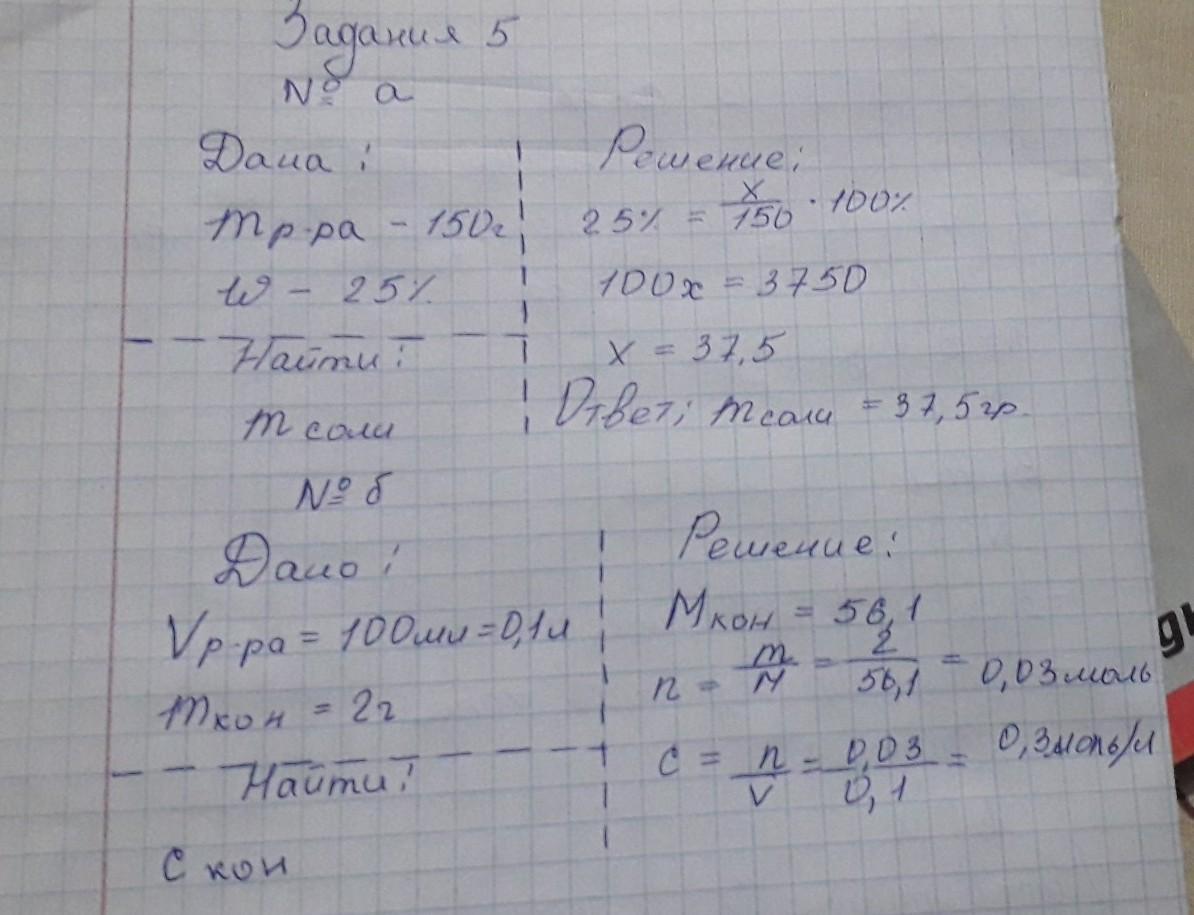 Задания 5
№ а
Дана :
m р-ра - 150г
W - 25%
Найти :
m соли
Решение :
25% = x/150 · 100%
100x = 3750
x = 37,5
Ответ ; m соли = 37,5 гр.
№ б
Дано :
V р-ра = 100мл = 0,1л
m кон = 2г
Найти :
С кон
Решение :
M кон = 56,1
n = m/M = 2/56,1 = 0,03 моль
c = n/v = 0,03/0,1 = 0,3моль/л